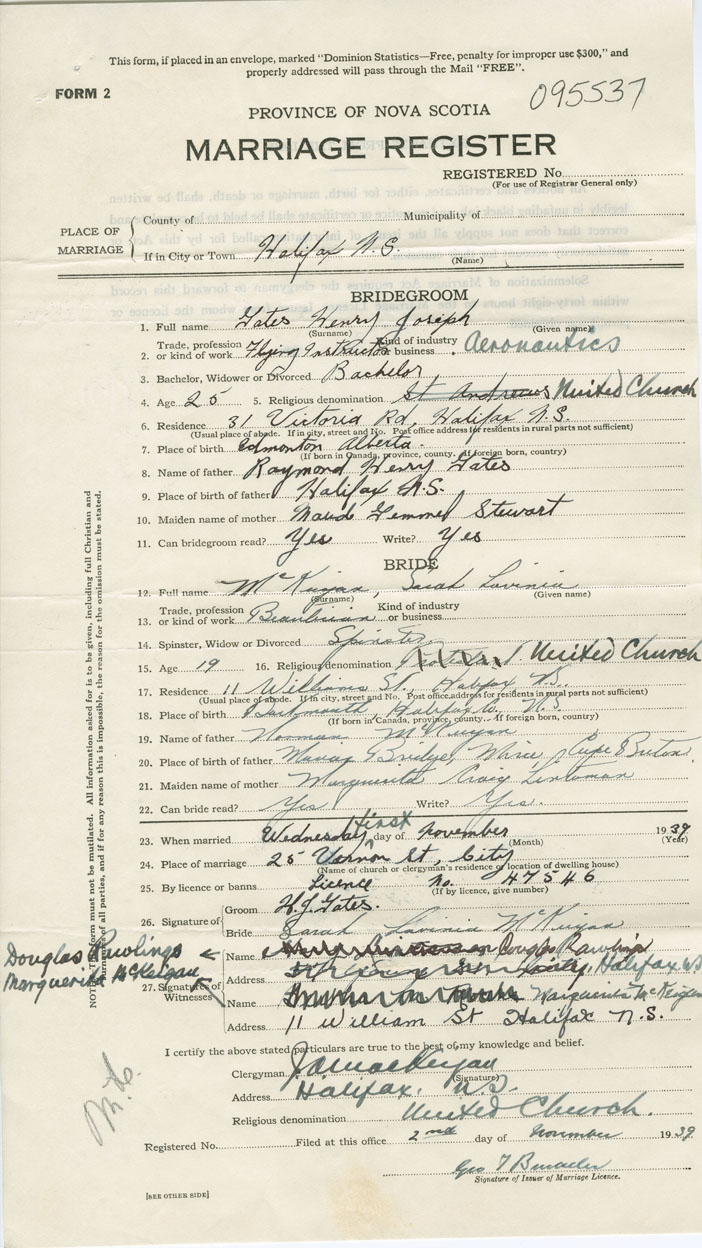 This form, if placed in an envelope, marked "Dominion Statistics—Free, penalty for improper use $300," and
properly addressed will pass through the Mail "FREE".
FORM 2
095537
PROVINCE OF NOVA SCOTIA
MARRIAGE REGISTER
REGISTERED No.
(For use of Registrar General only)
PLACE OF MARRIAGE
County of Municipality of
If in City or Town Halifax N.S.
(Name)
BRIDEGROOM
1. Full name Gates Henry Joseph
(Surname) (Given name)
2. Trade, profession or kind of work Flying Instructor Kind of industry or business Aeronautics
3. Bachelor, Widower or Divorced Bachelor
4. Age 25 5. Religious denomination St Andrews United Church
6. Residence 31 Victoria Rd, Halifax N.S.
(Usual place of abode. If in city, street and No. Post office address for residents in rural parts not sufficient)
7. Place of birth Edmonton Alberta.
(If born in Canada, province, county. If foreign born, country)
8. Name of father Raymond Henry Gates
9. Place of birth of father Halifax N.S.
10. Maiden name of mother Maud Gemmel Stewart
11. Can bridegroom read? Yes Write? Yes
BRIDE
12. Full name McKuigan, Sarah Lavinia
(Surname) (Given name)
13. Trade, profession or kind of work Beautician Kind of industry or business
14. Spinster, Widow or Divorced Spinster
15. Age 19 16. Religious denomination United Church
17. Residence 11 Williams St., Halifax N.S.
(Usual place of abode. If in city, street and No. Post office address for residents in rural parts not sufficient)
18. Place of birth Dartmouth Halifax Co. N.S.
(If born in Canada, province, county. If foreign born, country)
19. Name of father Norman McKuigan
20. Place of birth of father Bridge, Cape Breton
21. Maiden name of mother Marguerita Craig
22. Can bride read? Yes Write? Yes.
23. When married Wednesday first day of November 1939
(Month) (Year)
24. Place of marriage 25 Vernon St, City
(Name of church or clergyman's residence or location of dwelling house)
25. By licence or banns Licence No. 47546
(If by licence, give number)
26. Signature of
Groom H.J. Gates.
Bride Sarah Lavinia McKuigan
27. Signature of Witnesses
Name Douglas Rawlings
Address Halifax NS
Name Marguerita McKeigan
Address 11 William St Halifax N.S.
Douglas Rawlings ←
Marguerita McKeigan
NOTE This form must not be mutilated. All information asked for is to be given, including full Christian and
surname of all parties, and if for any reason this is impossible, the reason for the omission must be stated.
I certify the above stated particulars are true to the best of my knowledge and belief.
Clergyman
(Signature)
Address Halifax, N.S.
Religious denomination United Church.
Registered No. Filed at this office 2nd day of November 1939
Geo
Signature of Issuer of Marriage Licence.
[SEE OTHER SIDE]